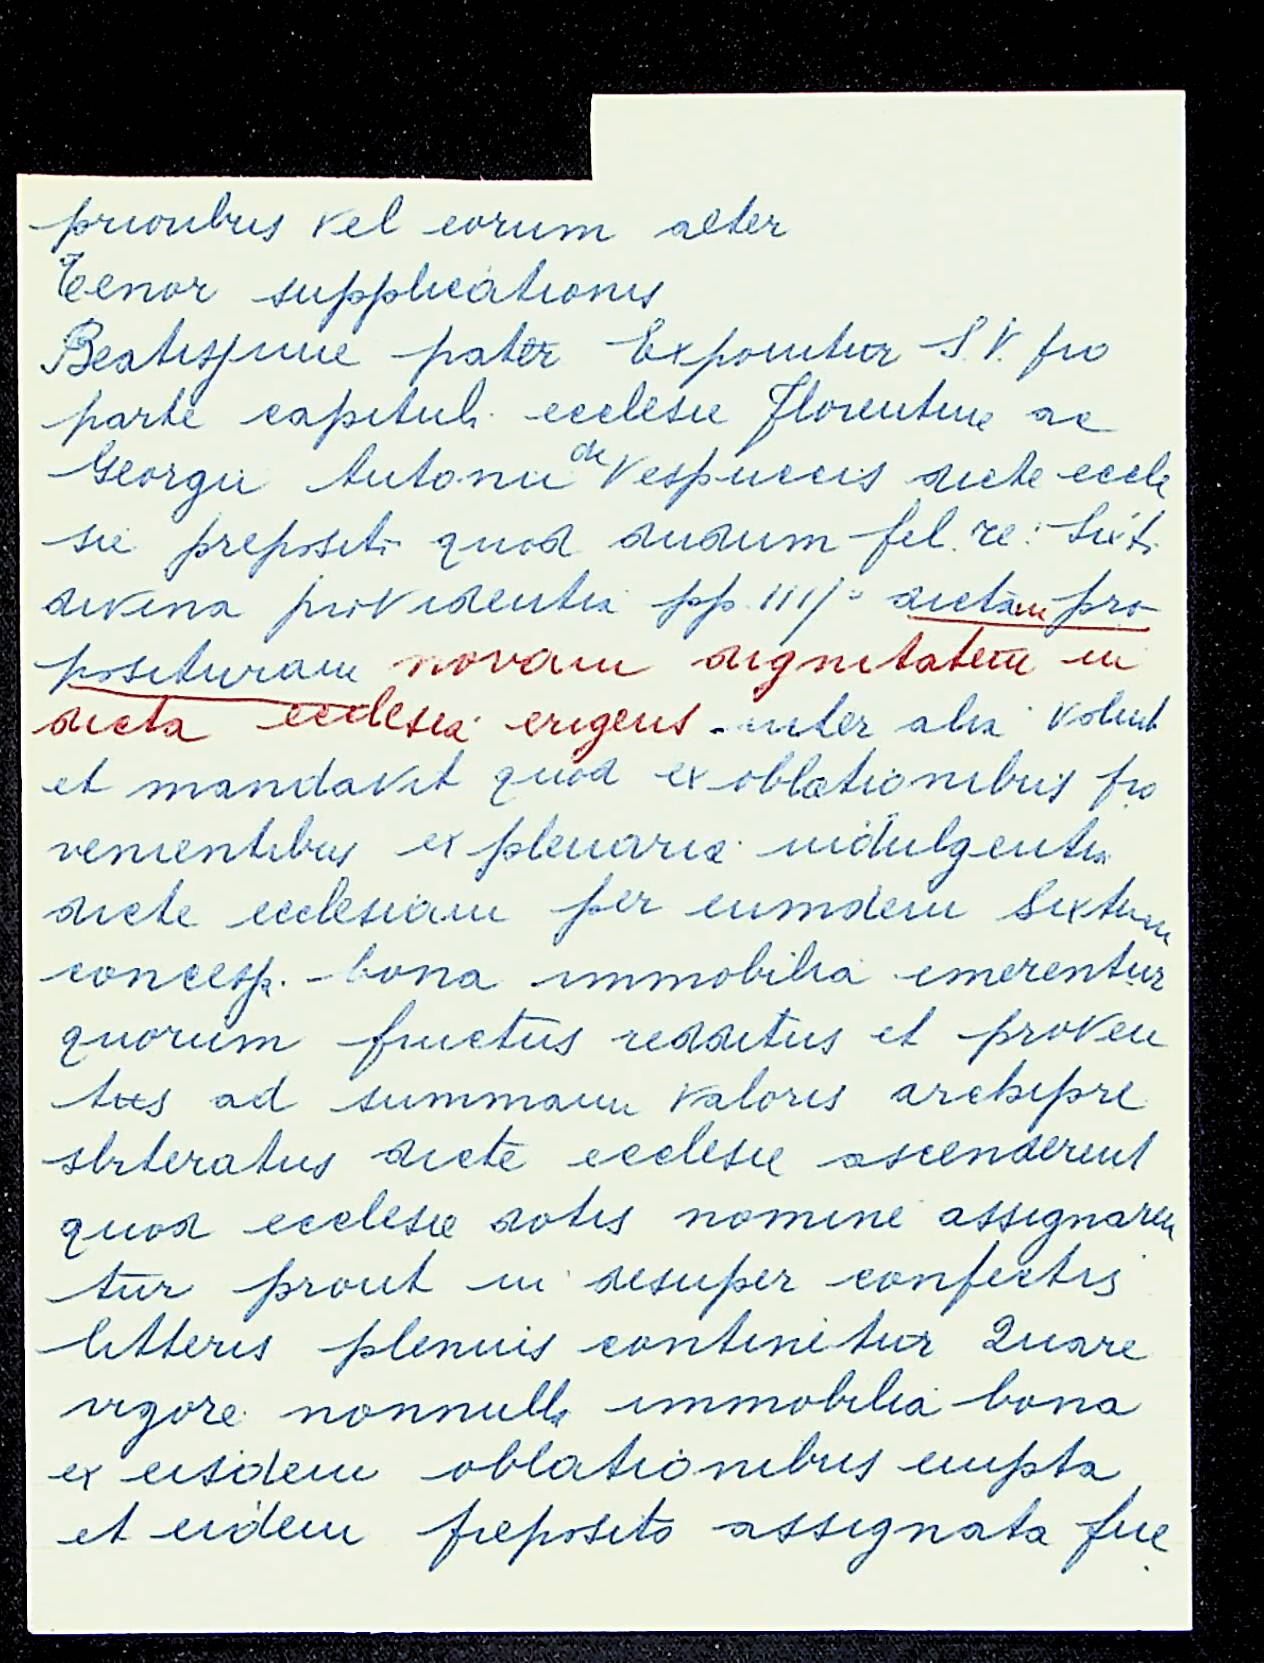 prioribus vel eorum alter
Tenor supplicationis
Beatissime pater Exponitur S.V. pro
parte capituli ecclesie Florentine ac
Georgii Antonii de Vespuccis dicte eccle
sie prepositi quod dudum fel. re: Sixti
divina providentia pp. IIII° dictam pro
posituram novam dignitatem in
dicta ecclesia erigens inter alia voluit
et mandavit quod ex oblationibus pro
venientibus ex plenaria indulgentia
dicte ecclesiam per eumdem Sixtum
concessa bona immobilia emerentur
quorum fructus redditus et proven
tus ad summam valoris archipre
sbiteratus dicte ecclesie ascenderent
quod ecclesie dotis nomine assignaren
tur prout in desuper confectis
litteris plenius continetur Quare
vigore nonnulla immobilia bona
ex eisdem oblationibus empta
et eidem preposito assignata fue